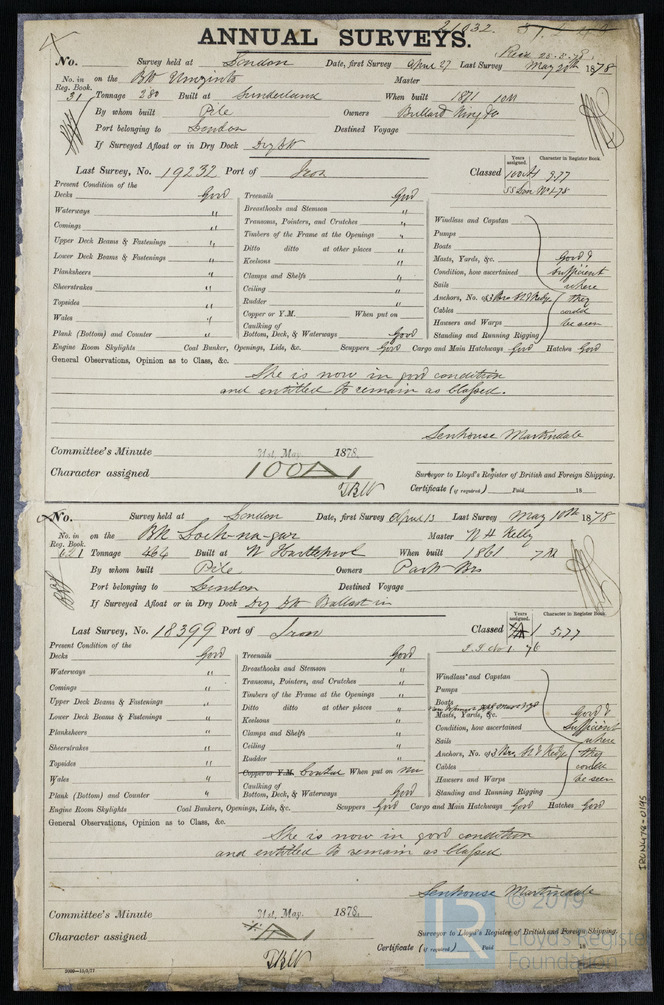 21032.
ANNUAL SURVEYS.
Recd 28.5.78
No. Survey held at London Date, first Survey April 27 Last Survey May 20th 1878
No. in Reg. Book. on the Bk Umzinto Master
31 Tonnage 280 Built at Sunderland When built 1871 10M
By whom built Pile Owners Bullard King &Co
Port belonging to London Destined Voyage
If Surveyed Afloat or in Dry Dock Dry Dk
Last Survey, No. 19232 Port of Iron Classed 100A1 9.77
Years assigned. Character in Register Book.
SS Lon No1-78
Present Condition of the
Decks Good Treenails Good
Waterways " Breasthooks and Stemson " Windlass and Capstan
Comings " Transoms, Pointers, and Crutches " Pumps
Upper Deck Beams & Fastenings " Timbers of the Frame at the Openings " Boats
Lower Deck Beams & Fastenings " Ditto ditto at other places " Masts, Yards, &c. Good &
Planksheers " Keelsons " Condition, how ascertained Sufficient
Sheerstrakes " Clamps and Shelfs " Sails where
Topsides " Ceiling " Anchors, No. of they
Wales " Rudder " Cables could
Copper or Y.M. When put on Hawsers and Warps be seen
Plank (Bottom) and Counter " Caulking of Bottom, Deck, & Waterways Good Standing and Running Rigging
Engine Room Skylights Coal Bunker, Openings, Lids, &c. Scuppers Good Cargo and Main Hatchways Good Hatches Good
General Observations, Opinion as to Class, &c.
She is now in good condition
and entitled to remain as Classed.
Senhouse Martindale
Committee's Minute 31st May 1878.
Character assigned 100A1 Surveyor to Lloyd's Register of British and Foreign Shipping.
Certificate (if required) Paid 18
No. Survey held at London Date, first Survey April 13 Last Survey May 10th 1878
No. in Reg. Book. on the Bk Loch-na-gar Master
621 Tonnage 464 Built at W Hartlepool When built 1861 7M
By whom built Pile Owners Park Bros
Port belonging to London Destined Voyage
If Surveyed Afloat or in Dry Dock Dry Dk Ballast in
Last Survey, No. 18399 Port of Iron Classed 5.77
Years assigned. Character in Register Book.
Present Condition of the
Decks Good Treenails Good
Waterways " Breasthooks and Stemson " Windlass and Capstan
Comings " Transoms, Pointers, and Crutches " Pumps
Upper Deck Beams & Fastenings " Timbers of the Frame at the Openings " Boats
Lower Deck Beams & Fastenings " Ditto ditto at other places " Masts, Yards, &c. Good &
Planksheers " Keelsons " Condition, how ascertained Sufficient
Sheerstrakes " Clamps and Shelfs " Sails where
Topsides " Ceiling " Anchors, No. of they
Wales " Rudder " Cables could
Copper or Y.M. When put on Hawsers and Warps be seen
Plank (Bottom) and Counter " Caulking of Bottom, Deck, & Waterways Good Standing and Running Rigging
Engine Room Skylights Coal Bunkers, Openings, Lids, &c. Scuppers Good Cargo and Main Hatchways Good Hatches Good
General Observations, Opinion as to Class, &c.
She is now in good condition
and entitled to remain as Classed
Senhouse Martindale
Committee's Minute 31st May 1878.
Character assigned Surveyor to Lloyd's Register of British and Foreign Shipping.
Certificate (if required) Paid 18
IRON478-0195
LR © 2019
Lloyd's Register
Foundation